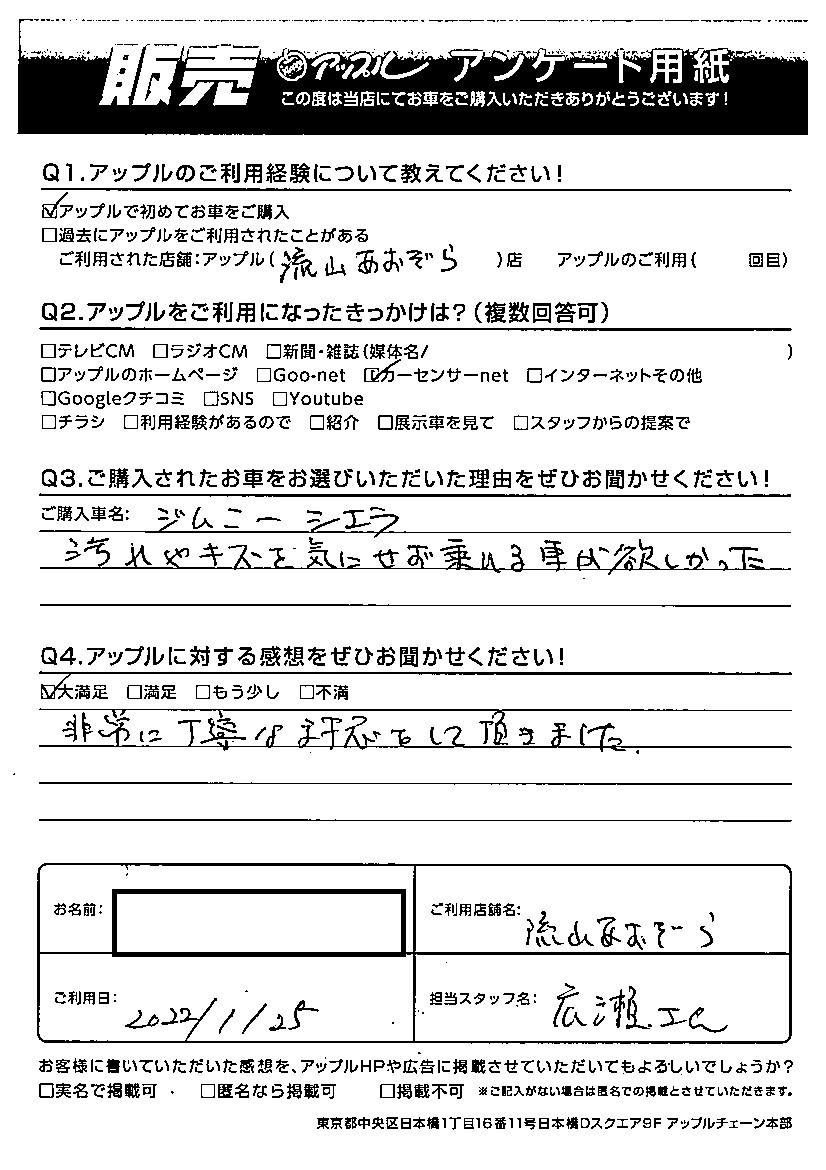 販売 アップル アンケート用紙
この度は当店にてお車をご購入いただきありがとうございます！
Q1.アップルのご利用経験について教えてください！
☑アップルで初めてお車をご購入
□過去にアップルをご利用されたことがある
ご利用された店舗:アップル( 流山あおぞら )店 アップルのご利用( 回目)
Q2.アップルをご利用になったきっかけは?(複数回答可)
□テレビCM □ラジオCM □新聞・雑誌(媒体名/ )
□アップルのホームページ □Goo-net ☑カーセンサーnet □インターネットその他
□Googleクチコミ □SNS □Youtube
□チラシ □利用経験があるので □紹介 □展示車を見て □スタッフからの提案で
Q3.ご購入されたお車をお選びいただいた理由をぜひお聞かせください！
ご購入車名: ジムニーシエラ
汚れやキズを気にせお乗れる車が欲しかった
Q4.アップルに対する感想をぜひお聞かせください！
☑大満足 □満足 □もう少し □不満
非常に丁寧な対応をして頂きました.
お名前:
ご利用店舗名: 流山あおぞら
ご利用日: 2022/1/25
担当スタッフ名: 広瀬
お客様に書いていただいた感想を、アップルHPや広告に掲載させていただいてもよろしいでしょうか?
□実名で掲載可 □匿名なら掲載可 □掲載不可 ※ご記入がない場合は匿名での掲載とさせていただきます。
東京都中央区日本橋1丁目16番11号日本橋Dスクエア9F アップルチェーン本部